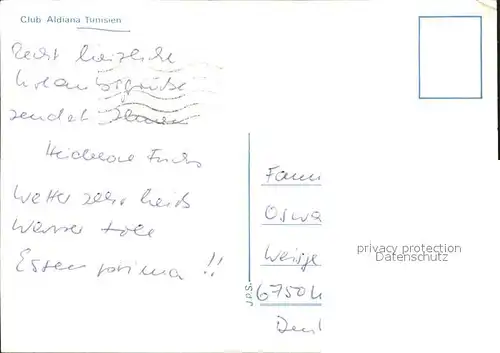 Club Aldiana Tunisien
Recht herzliche
Urlaubsgrüße
sendet
Heidelore Fuchs
Wetter sehr heiß
Wasser toll
Essen prima !!
Fam
Oswa
Weisge
67504
Deu
privacy protection
Datenschutz
J.P.S.